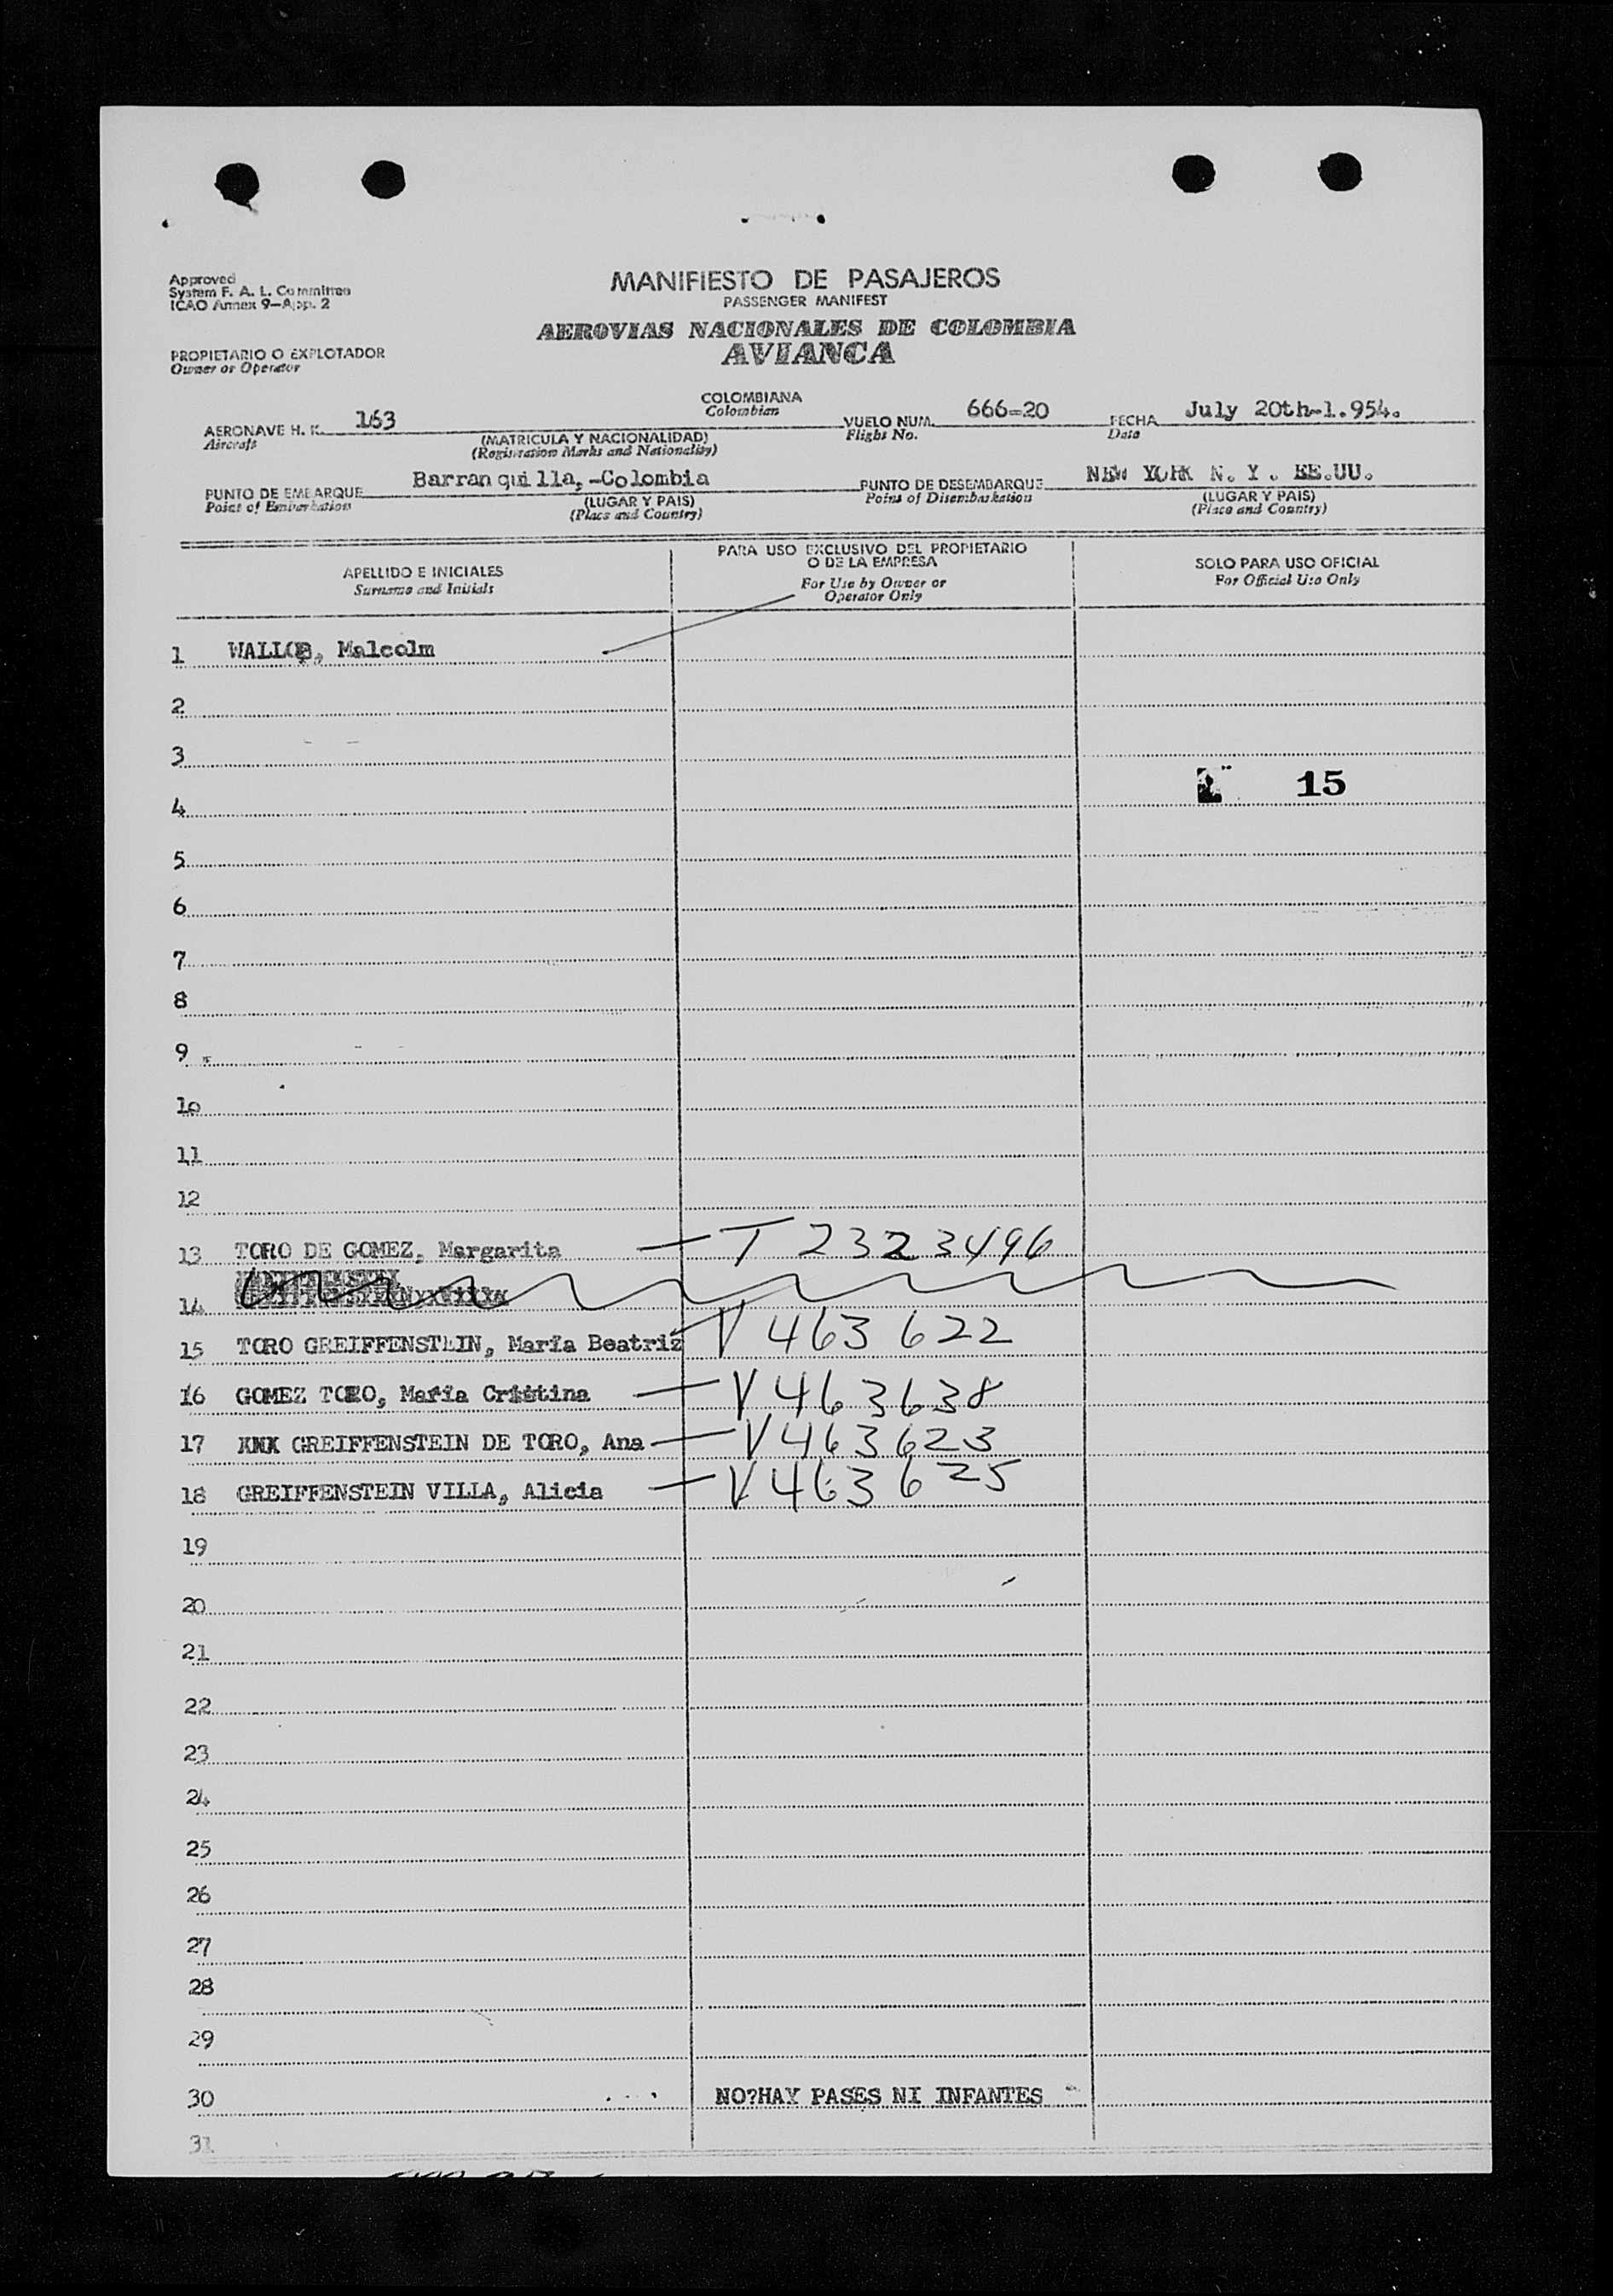 Approved
System F. A. L. Committee
ICAO Annex 9—App. 2
MANIFIESTO DE PASAJEROS
PASSENGER MANIFEST
AEROVIAS NACIONALES DE COLOMBIA
AVIANCA
PROPIETARIO O EXPLOTADOR
Owner or Operator
AERONAVE H. K. 163 COLOMBIANA VUELO NUM. 666-20 FECHA July 20th-1.954.
Aircraft Colombian Flight No. Date
(MATRICULA Y NACIONALIDAD)
(Registration Marks and Nationality)
PUNTO DE EMBARQUE Barranquilla,-Colombia PUNTO DE DESEMBARQUE NEW YORK N. Y. EE.UU.
Point of Embarkation (LUGAR Y PAIS) Point of Disembarkation (LUGAR Y PAIS)
(Place and Country) (Place and Country)
APELLIDO E INICIALES
Surname and Initials
PARA USO EXCLUSIVO DEL PROPIETARIO
O DE LA EMPRESA
For Use by Owner or
Operator Only
SOLO PARA USO OFICIAL
For Official Use Only
1 Malcolm
2
3
15
4
5
6
7
8
9
10
11
12
13 TORO DE GOMEZ, Margarita — T 2323496
14
15 TORO GREIFFENSTEIN, María Beatriz V 463622
16 GOMEZ TORO, María Cristina — V 463638
17 GREIFFENSTEIN DE TORO, Ana — V 463623
18 GREIFFENSTEIN VILLA, Alicia — V 463625
19
20
21
22
23
24
25
26
27
28
29
30 NO?HAY PASES NI INFANTES
31